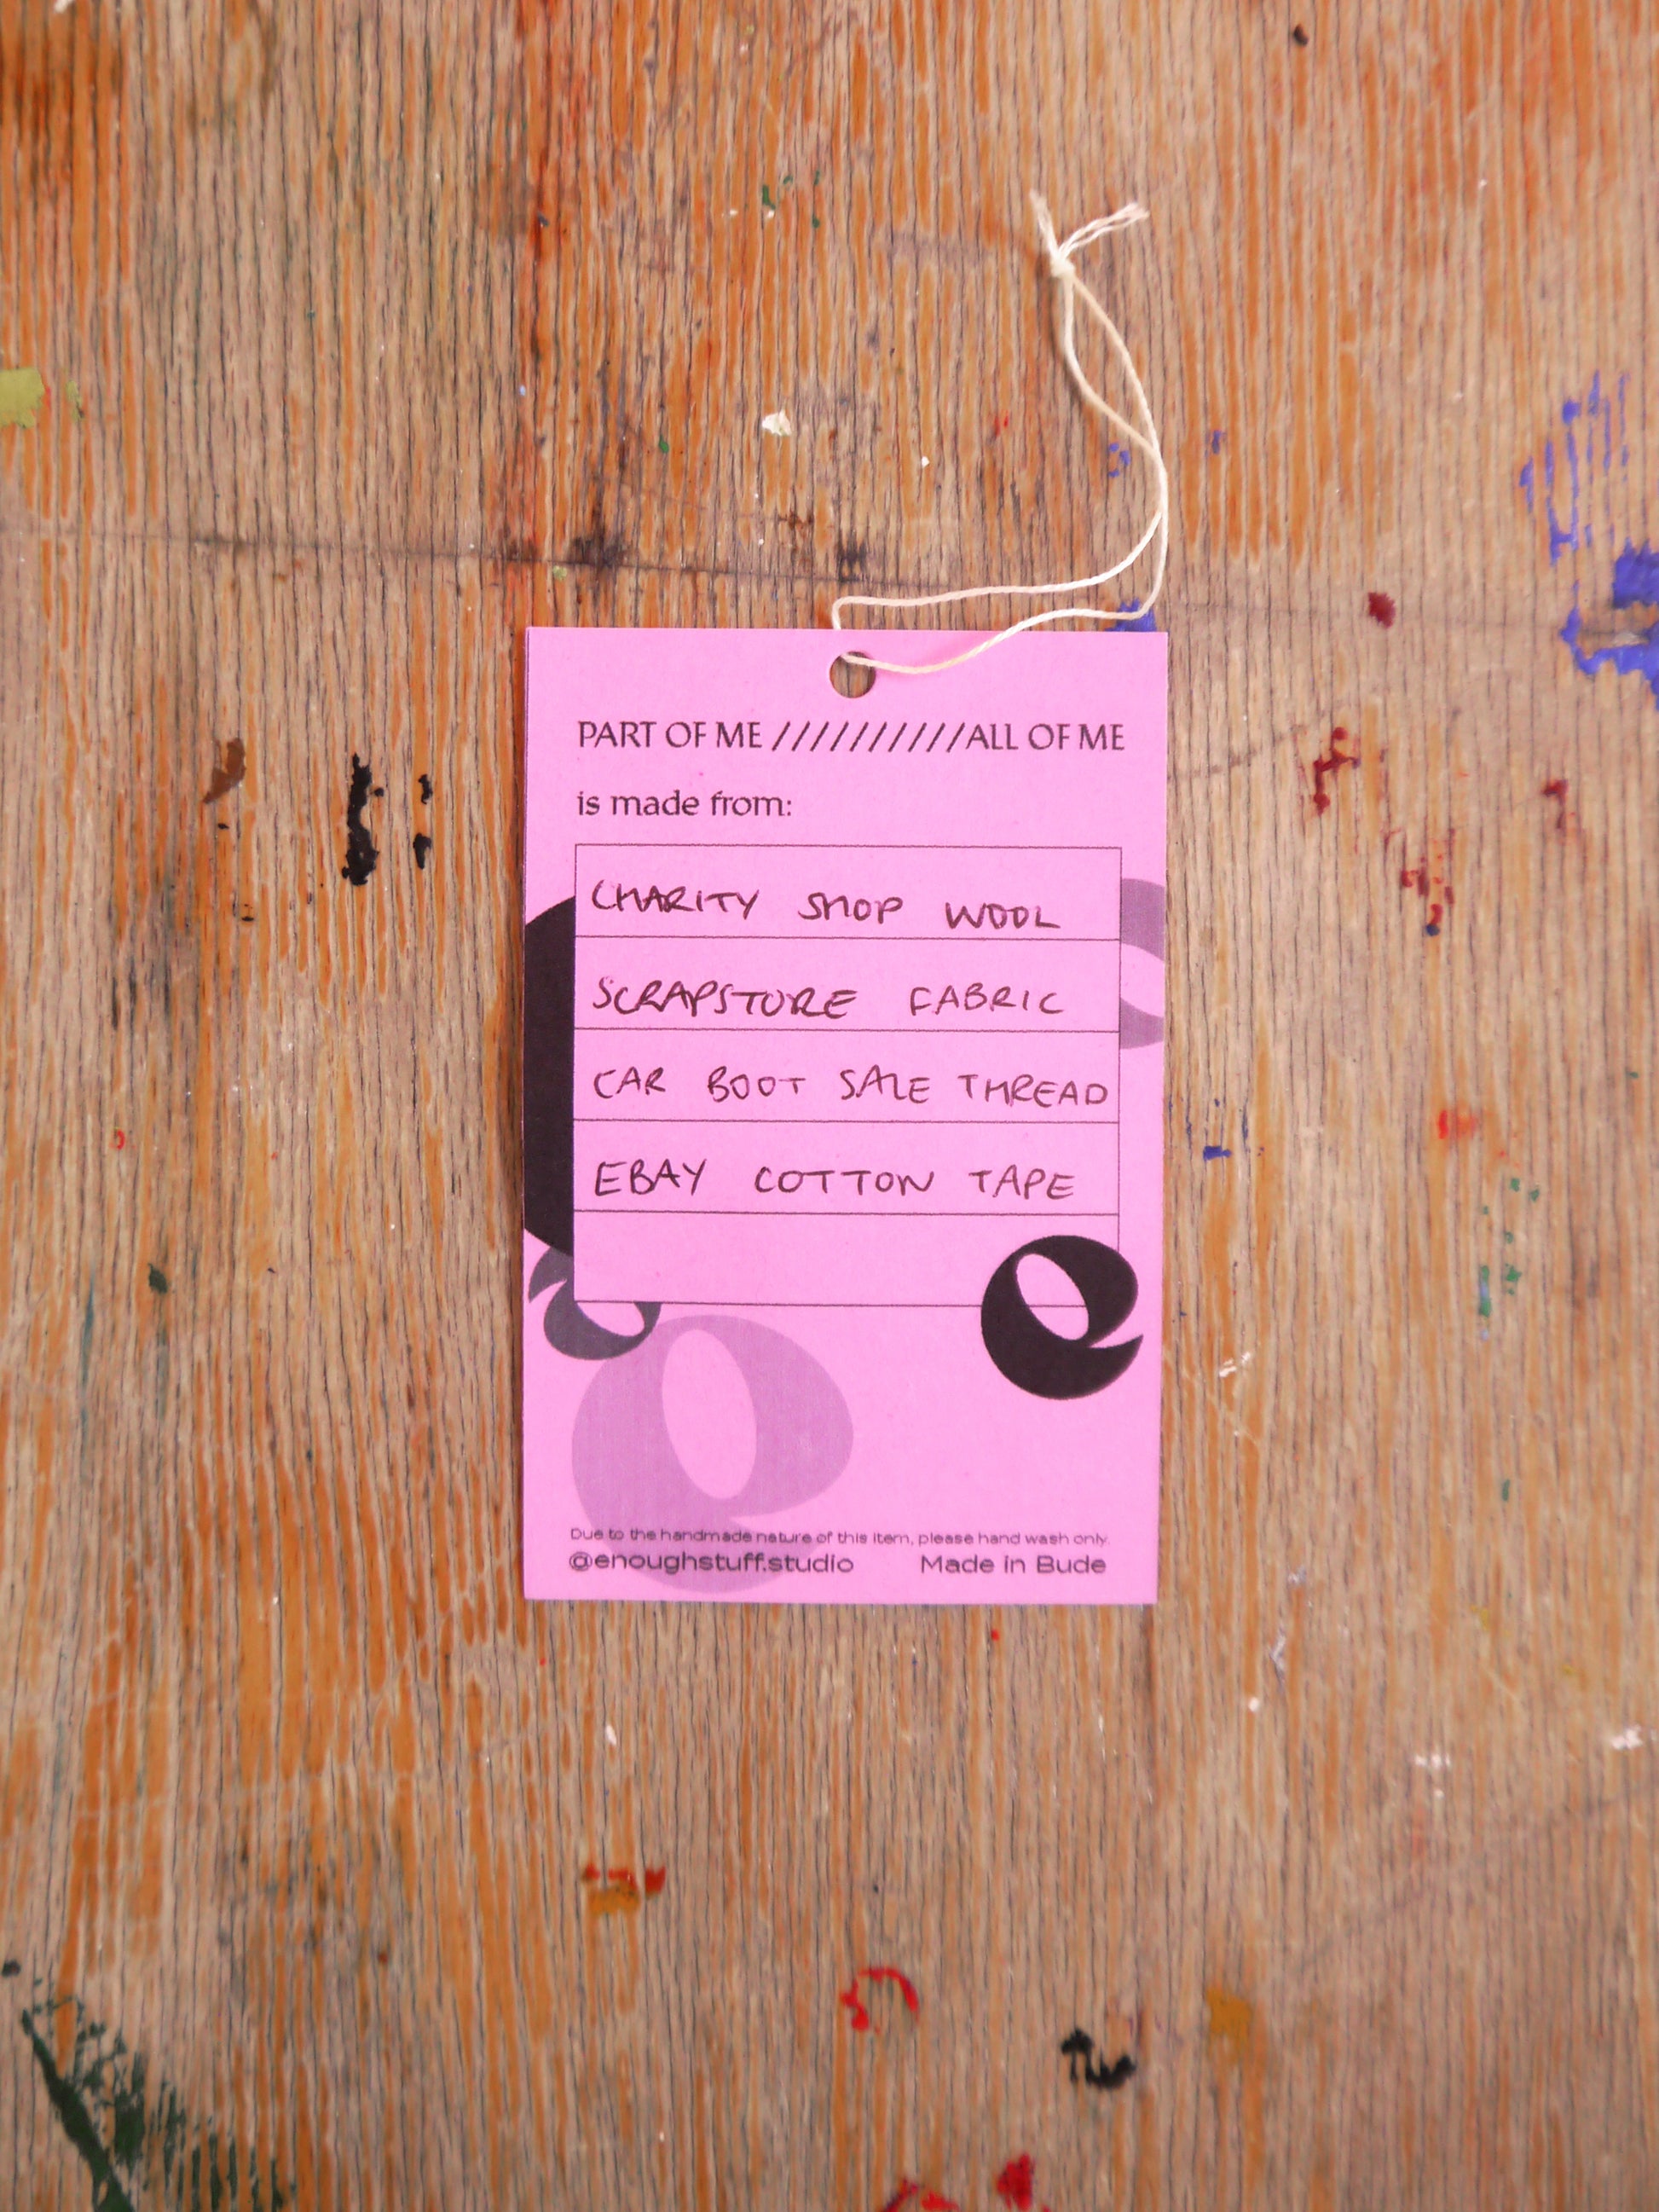 PART OF ME //////////ALL OF ME
is made from:
CHARITY SHOP WOOL
SCRAPSTORE FABRIC
CAR BOOT SALE THREAD
EBAY COTTON TAPE
Due to the handmade nature of this item, please hand wash only.
@enoughstuff.studio Made in Bude